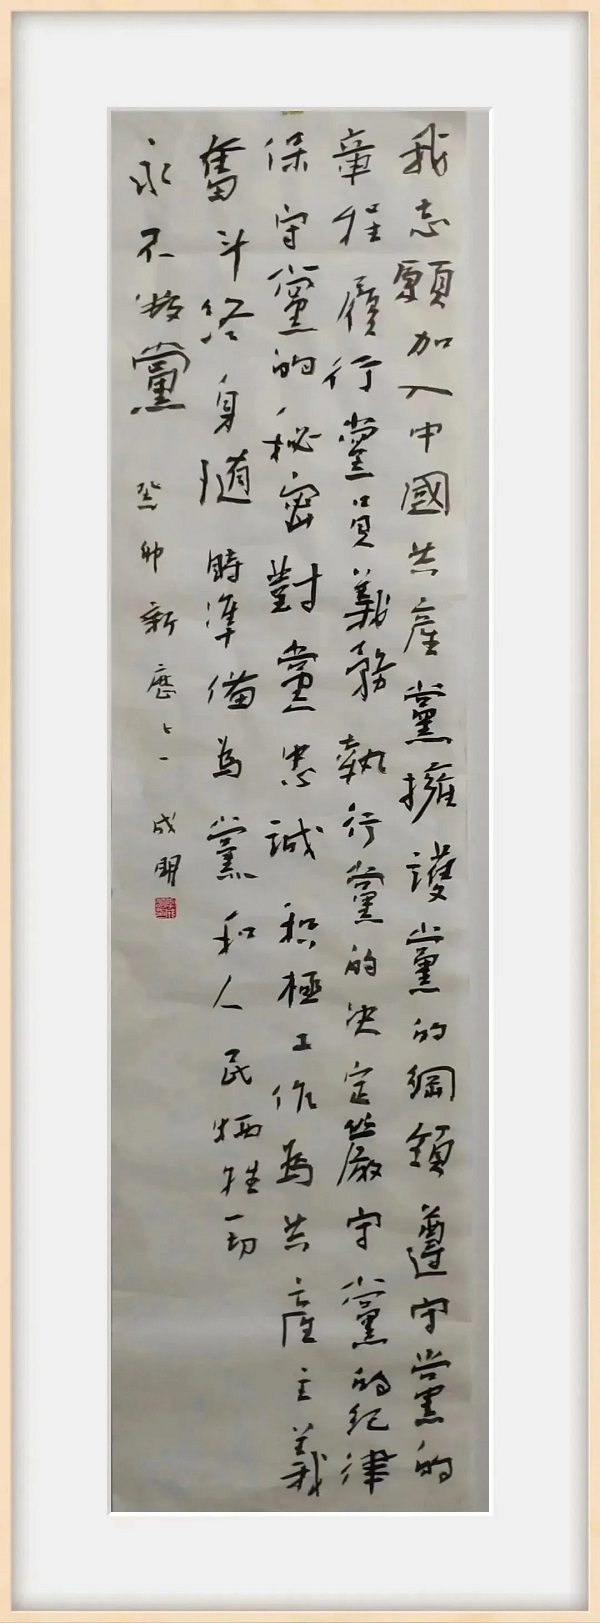 我志願加入中國共產黨擁護黨的綱領遵守黨的
章程履行黨員義務執行黨的決定嚴守黨的紀律
保守黨的秘密對黨忠誠積極工作為共產主義
奮斗終身隨時準備為黨和人民牺牲一切
永不叛黨
癸卯新曆七一 成明